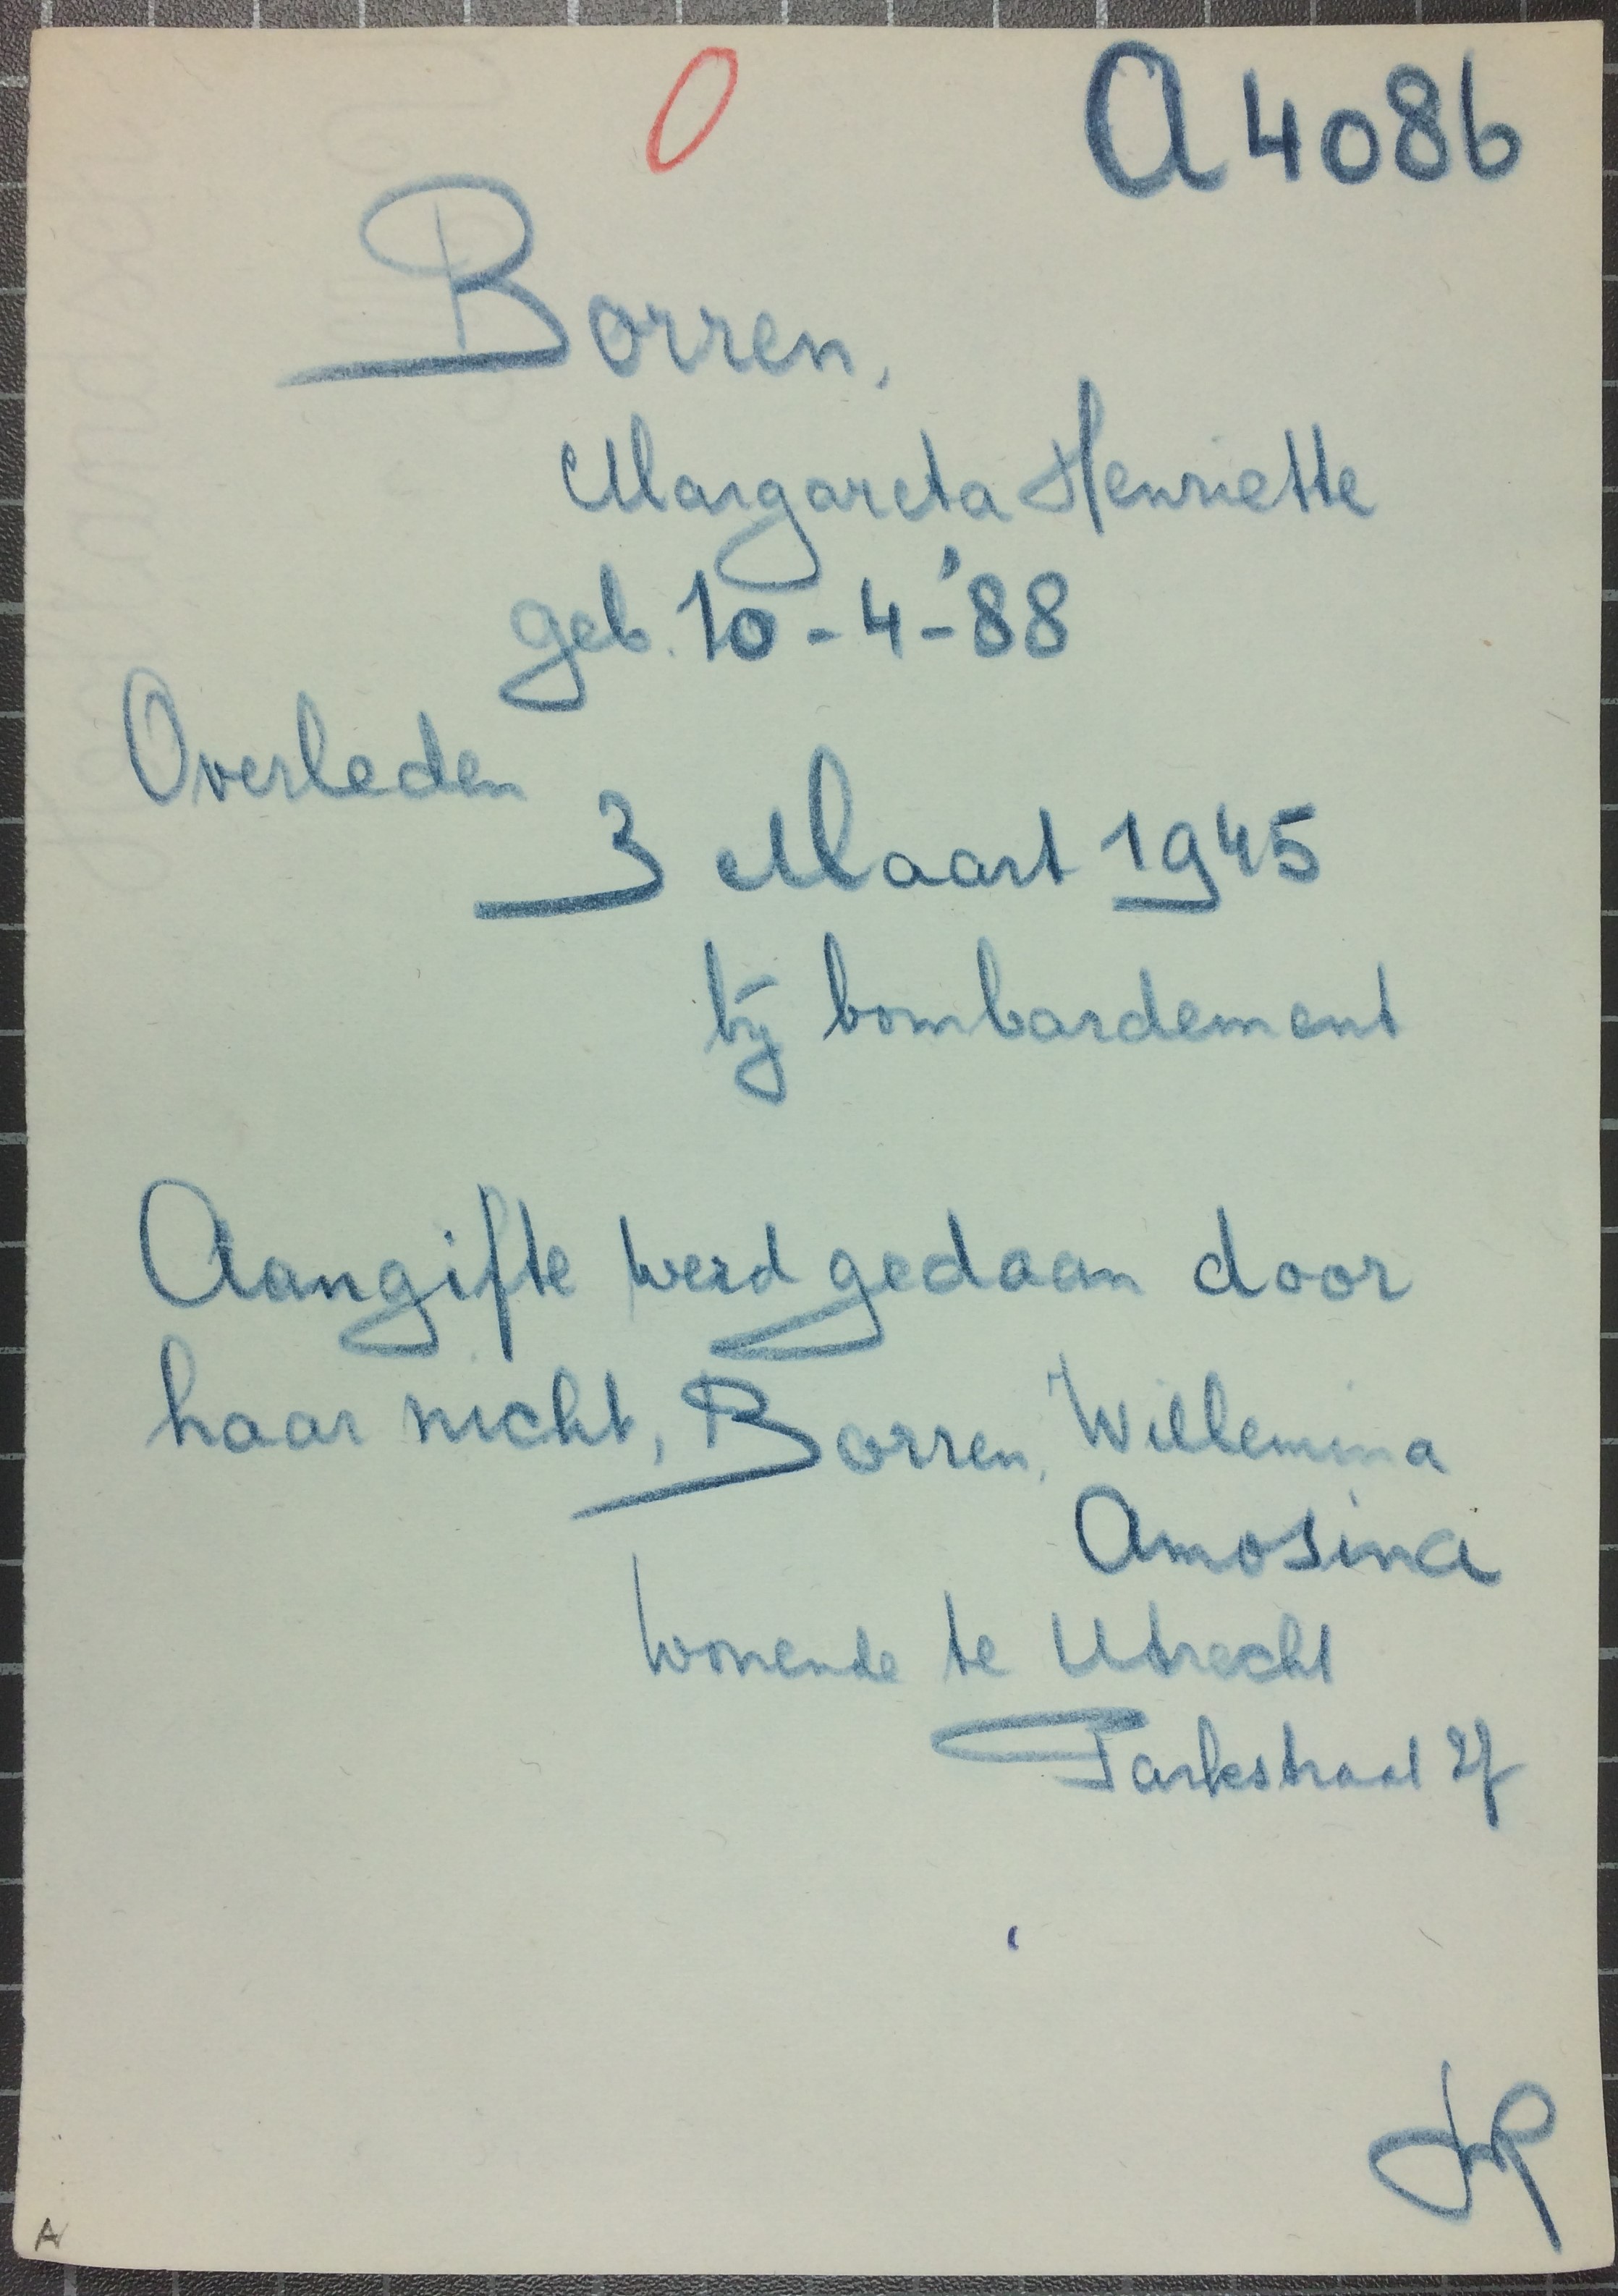 O
A 4086
Borren,
Margareta Henriette
geb. 10-4-'88
Overleden
3 Maart 1945
bij bombardement
Aangifte werd gedaan door
haar nicht, Borren, Willemina
Amosina
wonende te Utrecht
Parkstraat
A